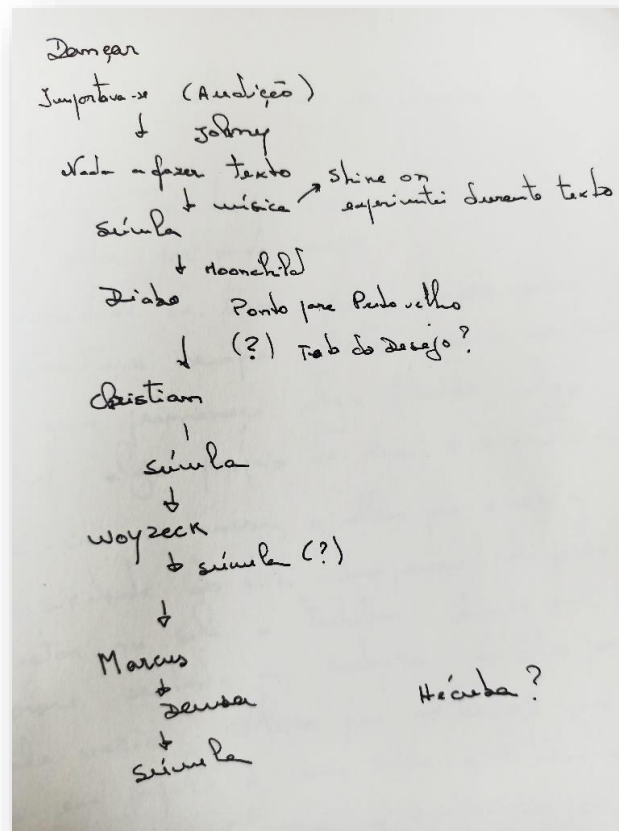 Dançar
Importava-se (Audição)
↓ Johnny
Nada a fazer texto
↓ música ↗ Shine on
experimentei durante texto
súmula
↓ Moonchild
Diabo Ponto para Preto velho
↓ (?) Trab do Desejo?
Christian
súmula
↓
Woyzeck
↓ súmula (?)
↓
Marcus
↓
Deusa
↓
súmula
Hécuba?